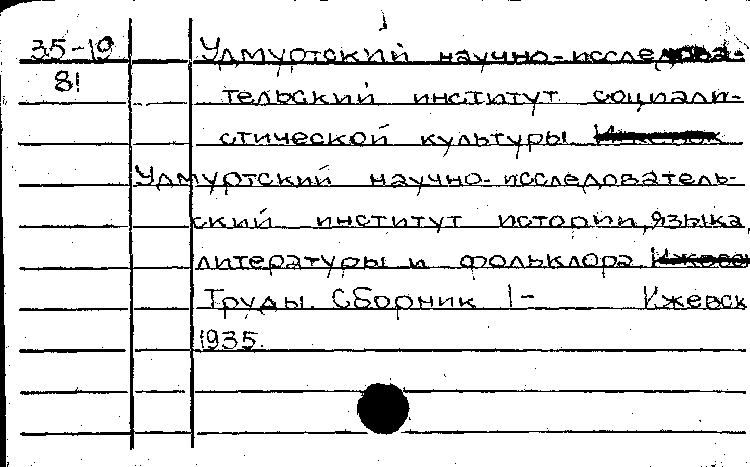 35-19 Удмуртский научно-исследова-
81 тельский институт социали-
стической культуры
Удмуртский научно-исследователь-
ский институт истории, языка,
литературы и фольклора
Труды. Сборник 1- Ижевск
1935.